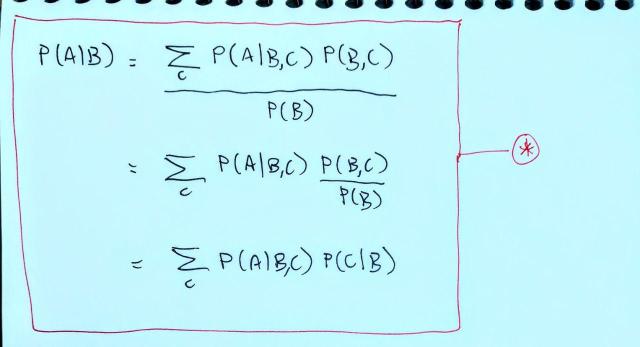 P(A|B) = ∑_C P(A|B,C) P(B,C) / P(B)
= ∑_C P(A|B,C) P(B,C) / P(B)
= ∑_C P(A|B,C) P(C|B)
*